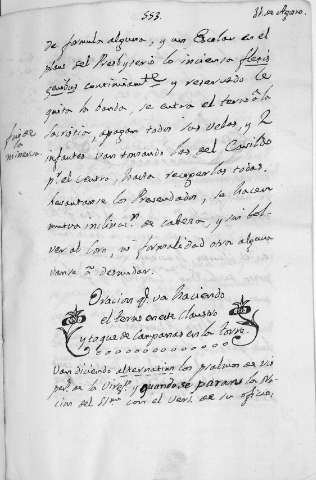 553.
31 de Agosto.
de formula alguna, y un Escolar en el
plano del Presbyterio lo inciensa flexis
genibus continuamte. y reservado le
quita la banda, se entra el terno â la
sacristia, apagan todas las velas, y 2
infantes van tomando las del Cavildo
pr. el centro, hasta recogerlas todas.
Levantanse los Presendados, se hacen
mutua inclinacn. de cabeza, y sin bol-
ver al Coro, ni formalidad otra alguna
vanse â desnudar.
fin de
la
minerva
Oracion q. va haciendo
el terno en este Claustro
y toque de Campanas en la torre.
Van diciendo alternatim los psalmos de vis
pers. de la Virgn. y quando se paran
con el vers. de su oficio,